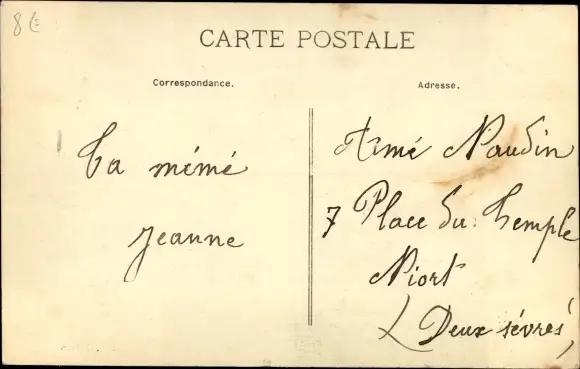 8€
CARTE POSTALE
Correspondance.
Adresse.
Ta mémé
Jeanne
Aimé Naudin
7 Place du Temple
Niort
(Deux sévres)